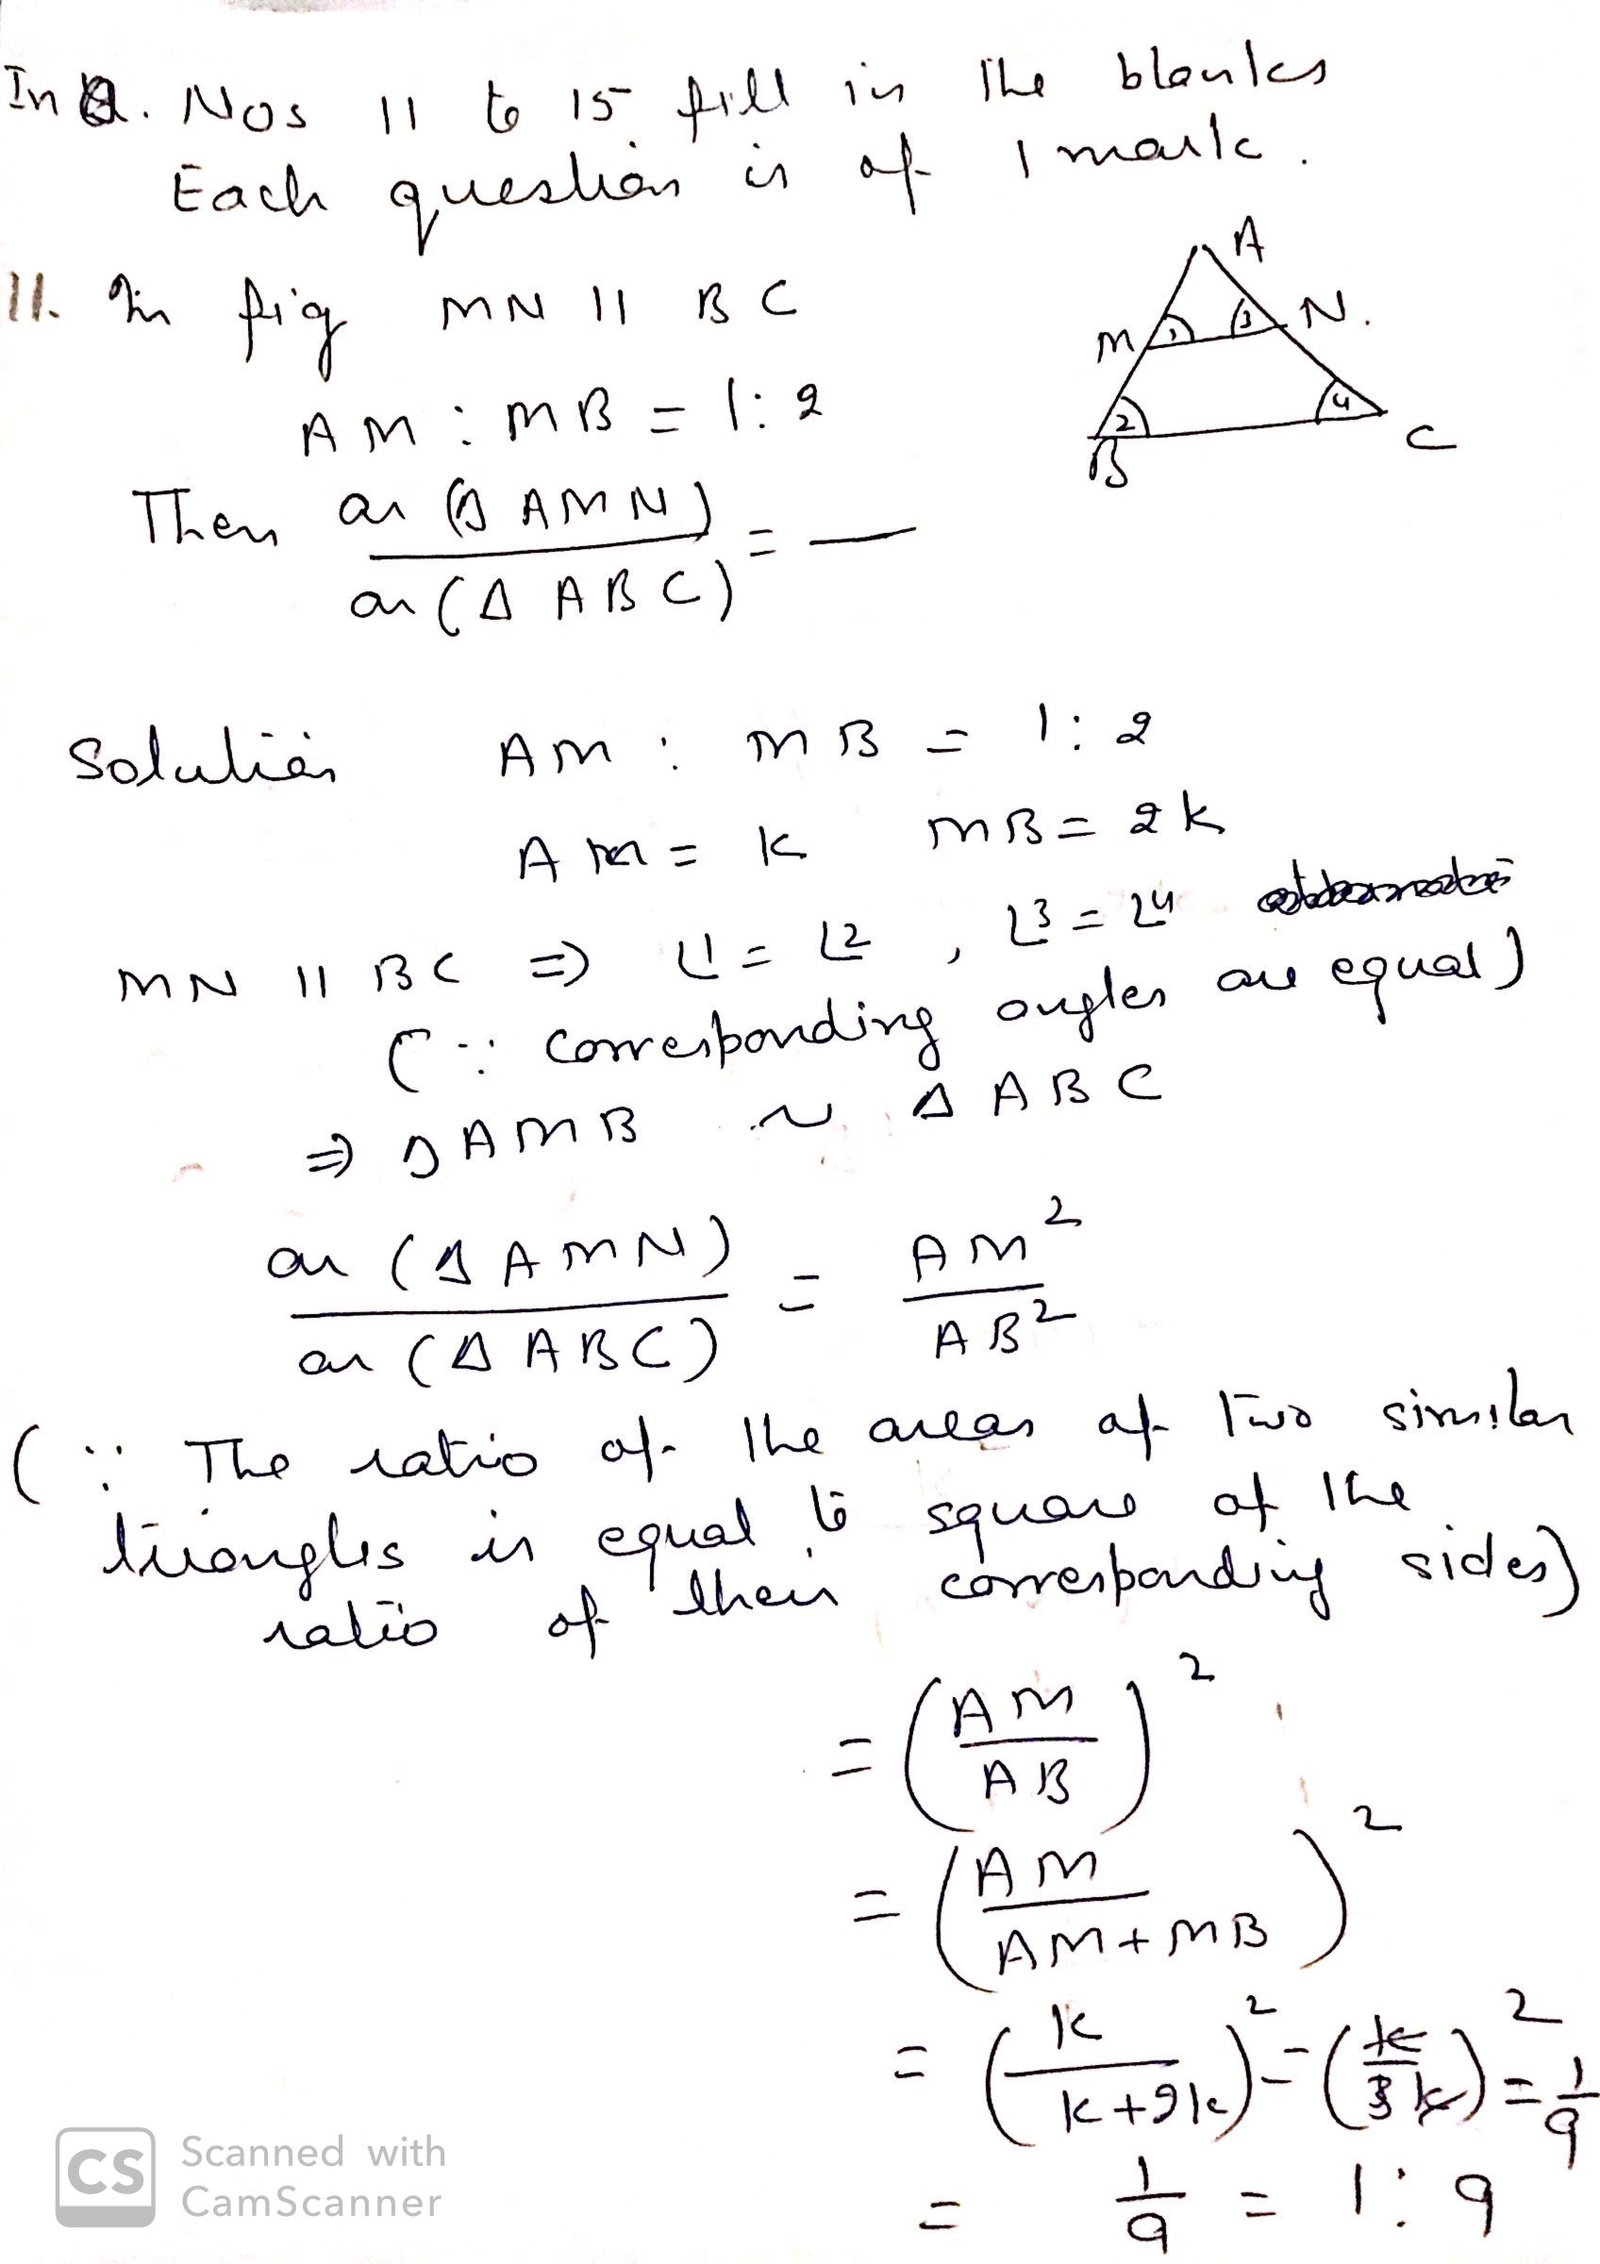 In Q. Nos 11 to 15 fill in the blanks
Each question is of 1 mark.
11. In fig MN || BC
AM : MB = 1:2
Then ar (Δ AMN) / ar (Δ ABC) = —
A
M
N.
B
C
1
3
2
4
Solution AM : MB = 1:2
AM = K MB = 2K
MN || BC ⇒ ∠1 = ∠2 , ∠3 = ∠4
(∵ corresponding angles are equal)
⇒ Δ AMB ~ Δ ABC
ar (Δ AMN) / ar (Δ ABC) = AM² / AB²
(∵ The ratio of the areas of two similar
triangles is equal to square of the
ratio of their corresponding sides)
= (AM / AB)²
= (AM / AM + MB)²
= (K / K + 2K)² = (K / 3K)² = 1/9
= 1/9 = 1:9
CS Scanned with
CamScanner